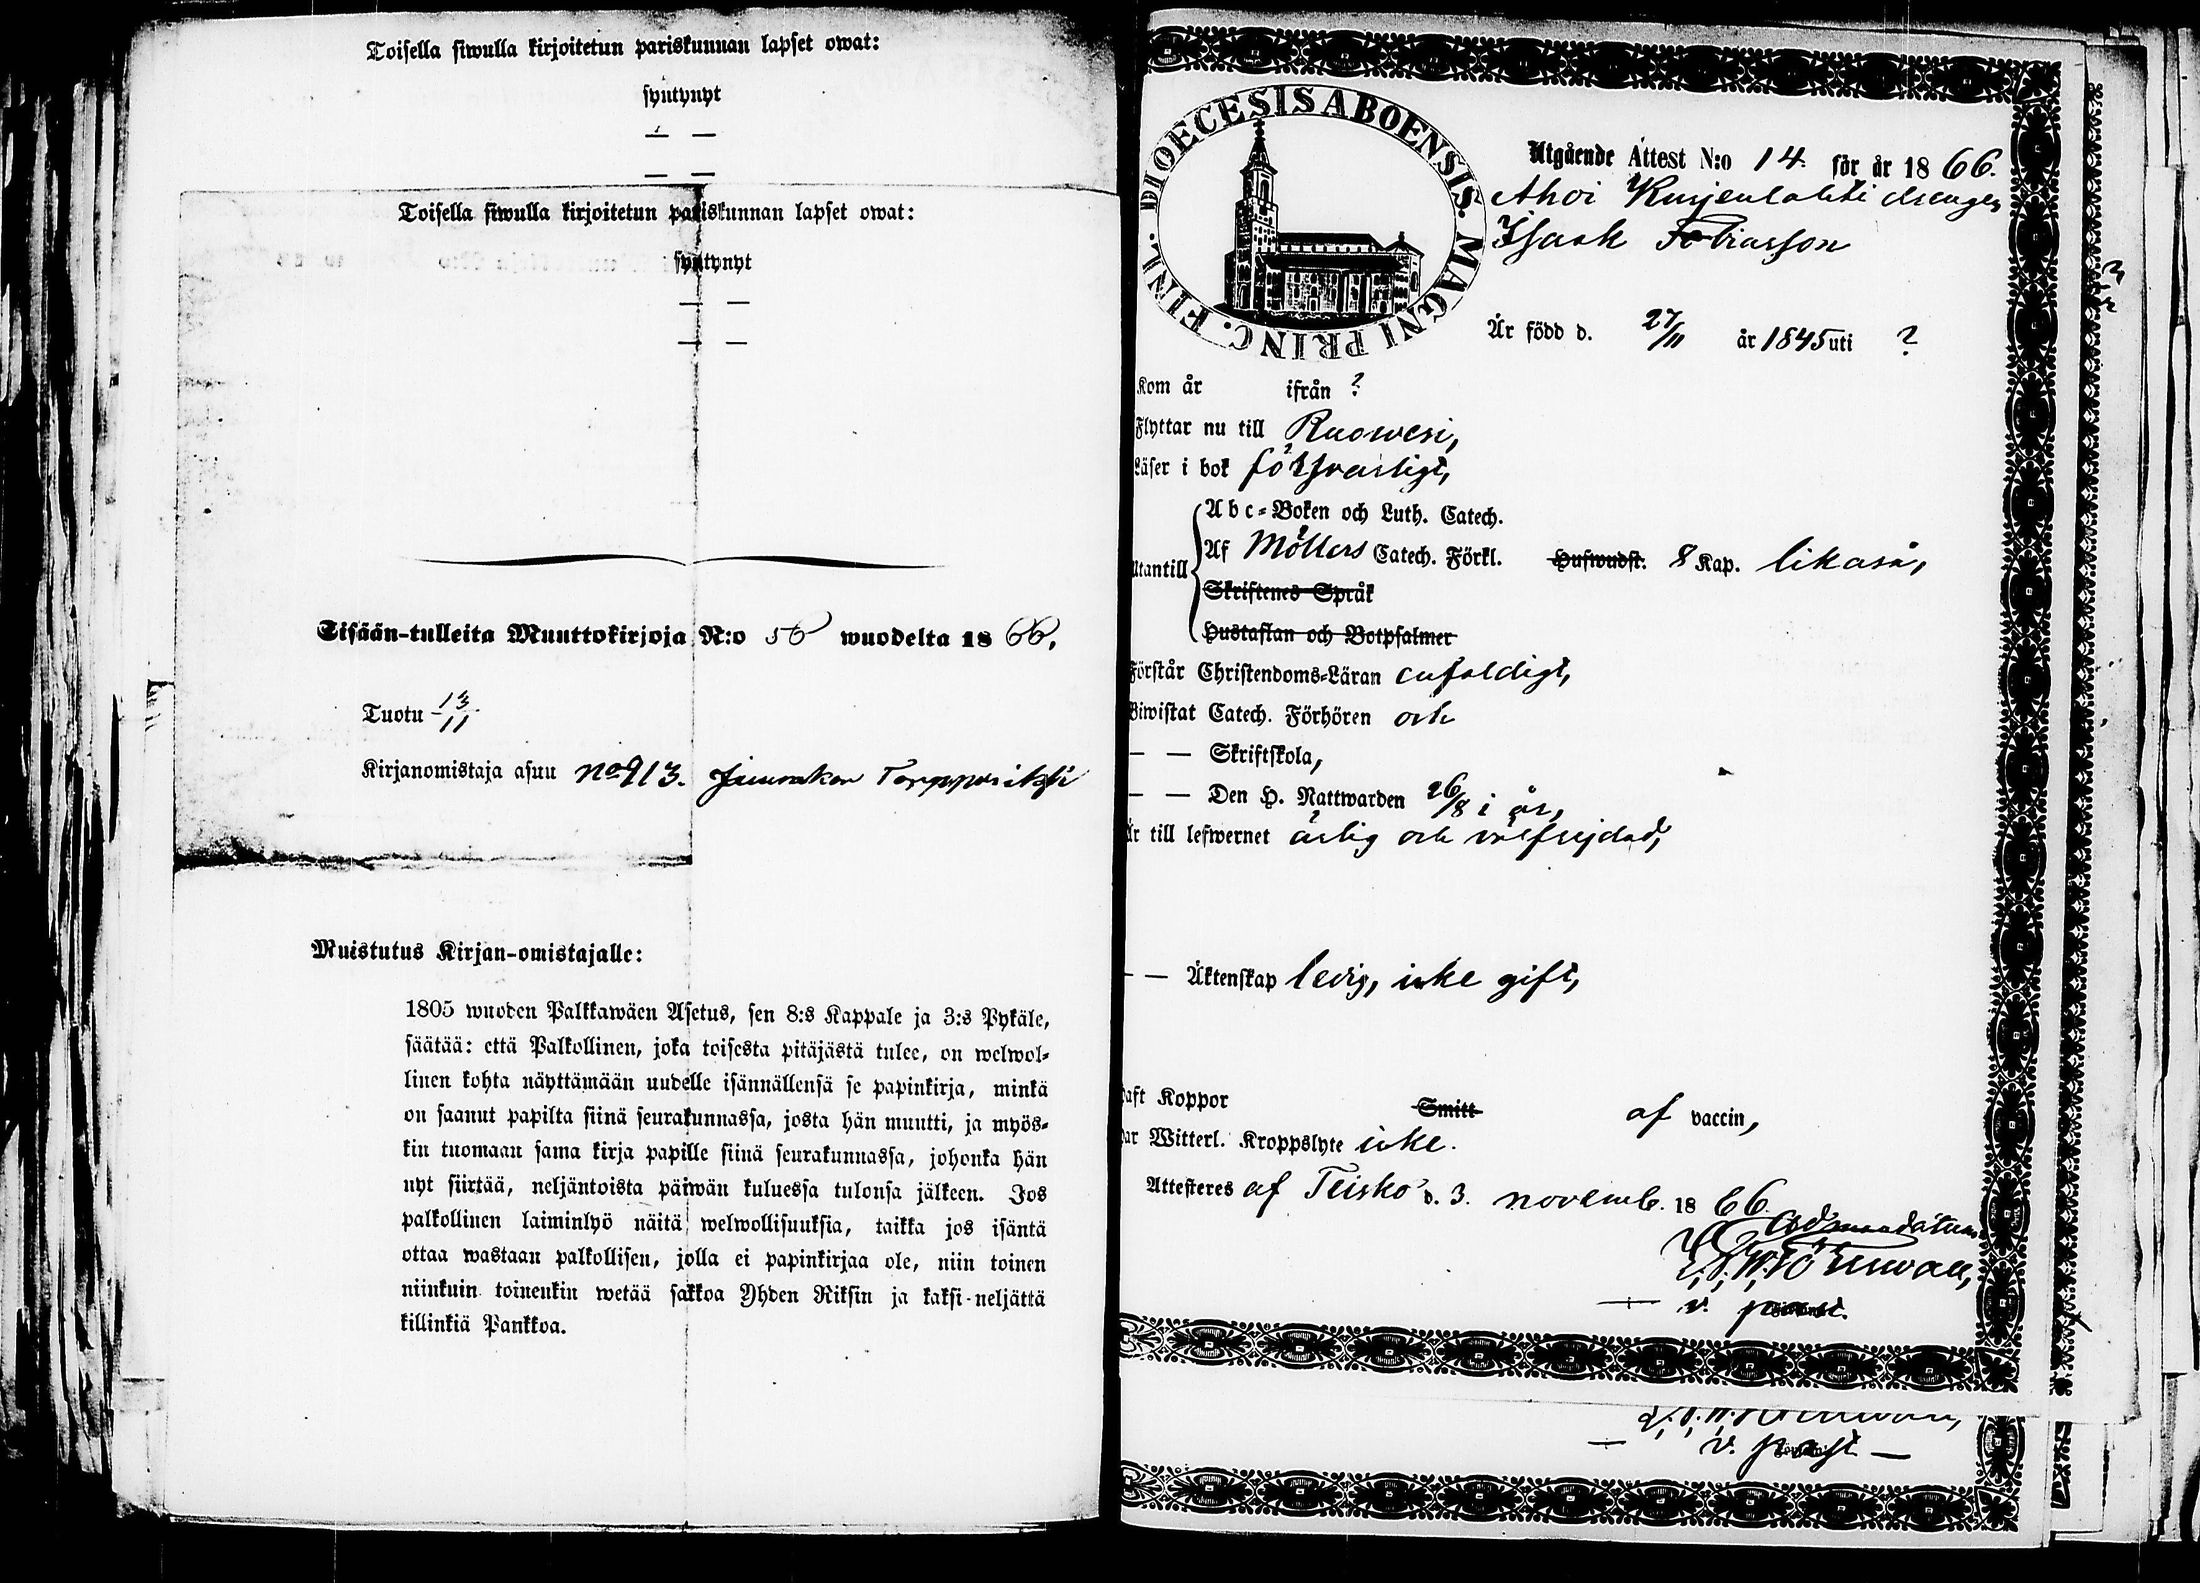 Toisella siwulla kirjoitetun pariskunnan lapset owat:
syntynyt
— —
— —
Toisella siwulla kirjoitetun pariskunnan lapset owat:
syntynyt
— —
— —
Sisään-tulleita Muuttokirjoja N:o 56 wuodelta 18 66.
Tuotu 13/11
Kirjanomistaja asuu no 913.
Muistutus Kirjan-omistajalle:
1805 wuoden Palkkawäen Asetus, sen 8:s Kappale ja 3:s Pykäle,
säätää: että Palkollinen, joka toisesta pitäjästä tulee, on welwol-
linen kohta näyttämään uudelle isännällensä se papinkirja, minkä
on saanut papilta siinä seurakunnassa, josta hän muutti, ja myös-
kin tuomaan sama kirja papille siinä seurakunnassa, johonka hän
nyt siirtää, neljäntoista päiwän kuluessa tulonsa jälkeen. Jos
palkollinen laiminlyö näitä welwollisuuksia, taikka jos isäntä
ottaa wastaan palkollisen, jolla ei papinkirjaa ole, niin toinen
niinkuin toinenkin wetää sakkoa Yhden Riksin ja kaksi-neljättä
killinkiä Pankkoa.
DIOECESIS ABOENSIS. MAGNI PRINC. FINL.
Utgående Attest N:o 14. för år 18 66.
Ahoi Kurjenlahti drengen
Isaak Tobiasson
Är född d. 27/11 år 1845 uti ?
Kom år ifrån ?
Flyttar nu till Ruowesi,
Läser i bok försvarligt,
Utantill
A b c-Boken och Luth. Catech.
Af Möllers Catech. Förkl. Huswudst. 8 Kap. likaså,
Skriftenes Språk
Hustaflan och Botpsalmer
Förstår Christendoms-Läran enfaldigt,
Biwistat Catech. Förhören och
— — Skriftskola,
— — Den H. Nattwarden 26/8 i år,
Är till lefwernet ärlig och välfrejdad,
— — Äktenskap ledig, icke gift,
haft Koppor Smitt af vaccin,
har Witterl. Kroppslyte icke.
Attesteres af Teisko d. 3. novemb. 18 66.
Ad mandatum
Törnwall,
v. past.
v. past. —